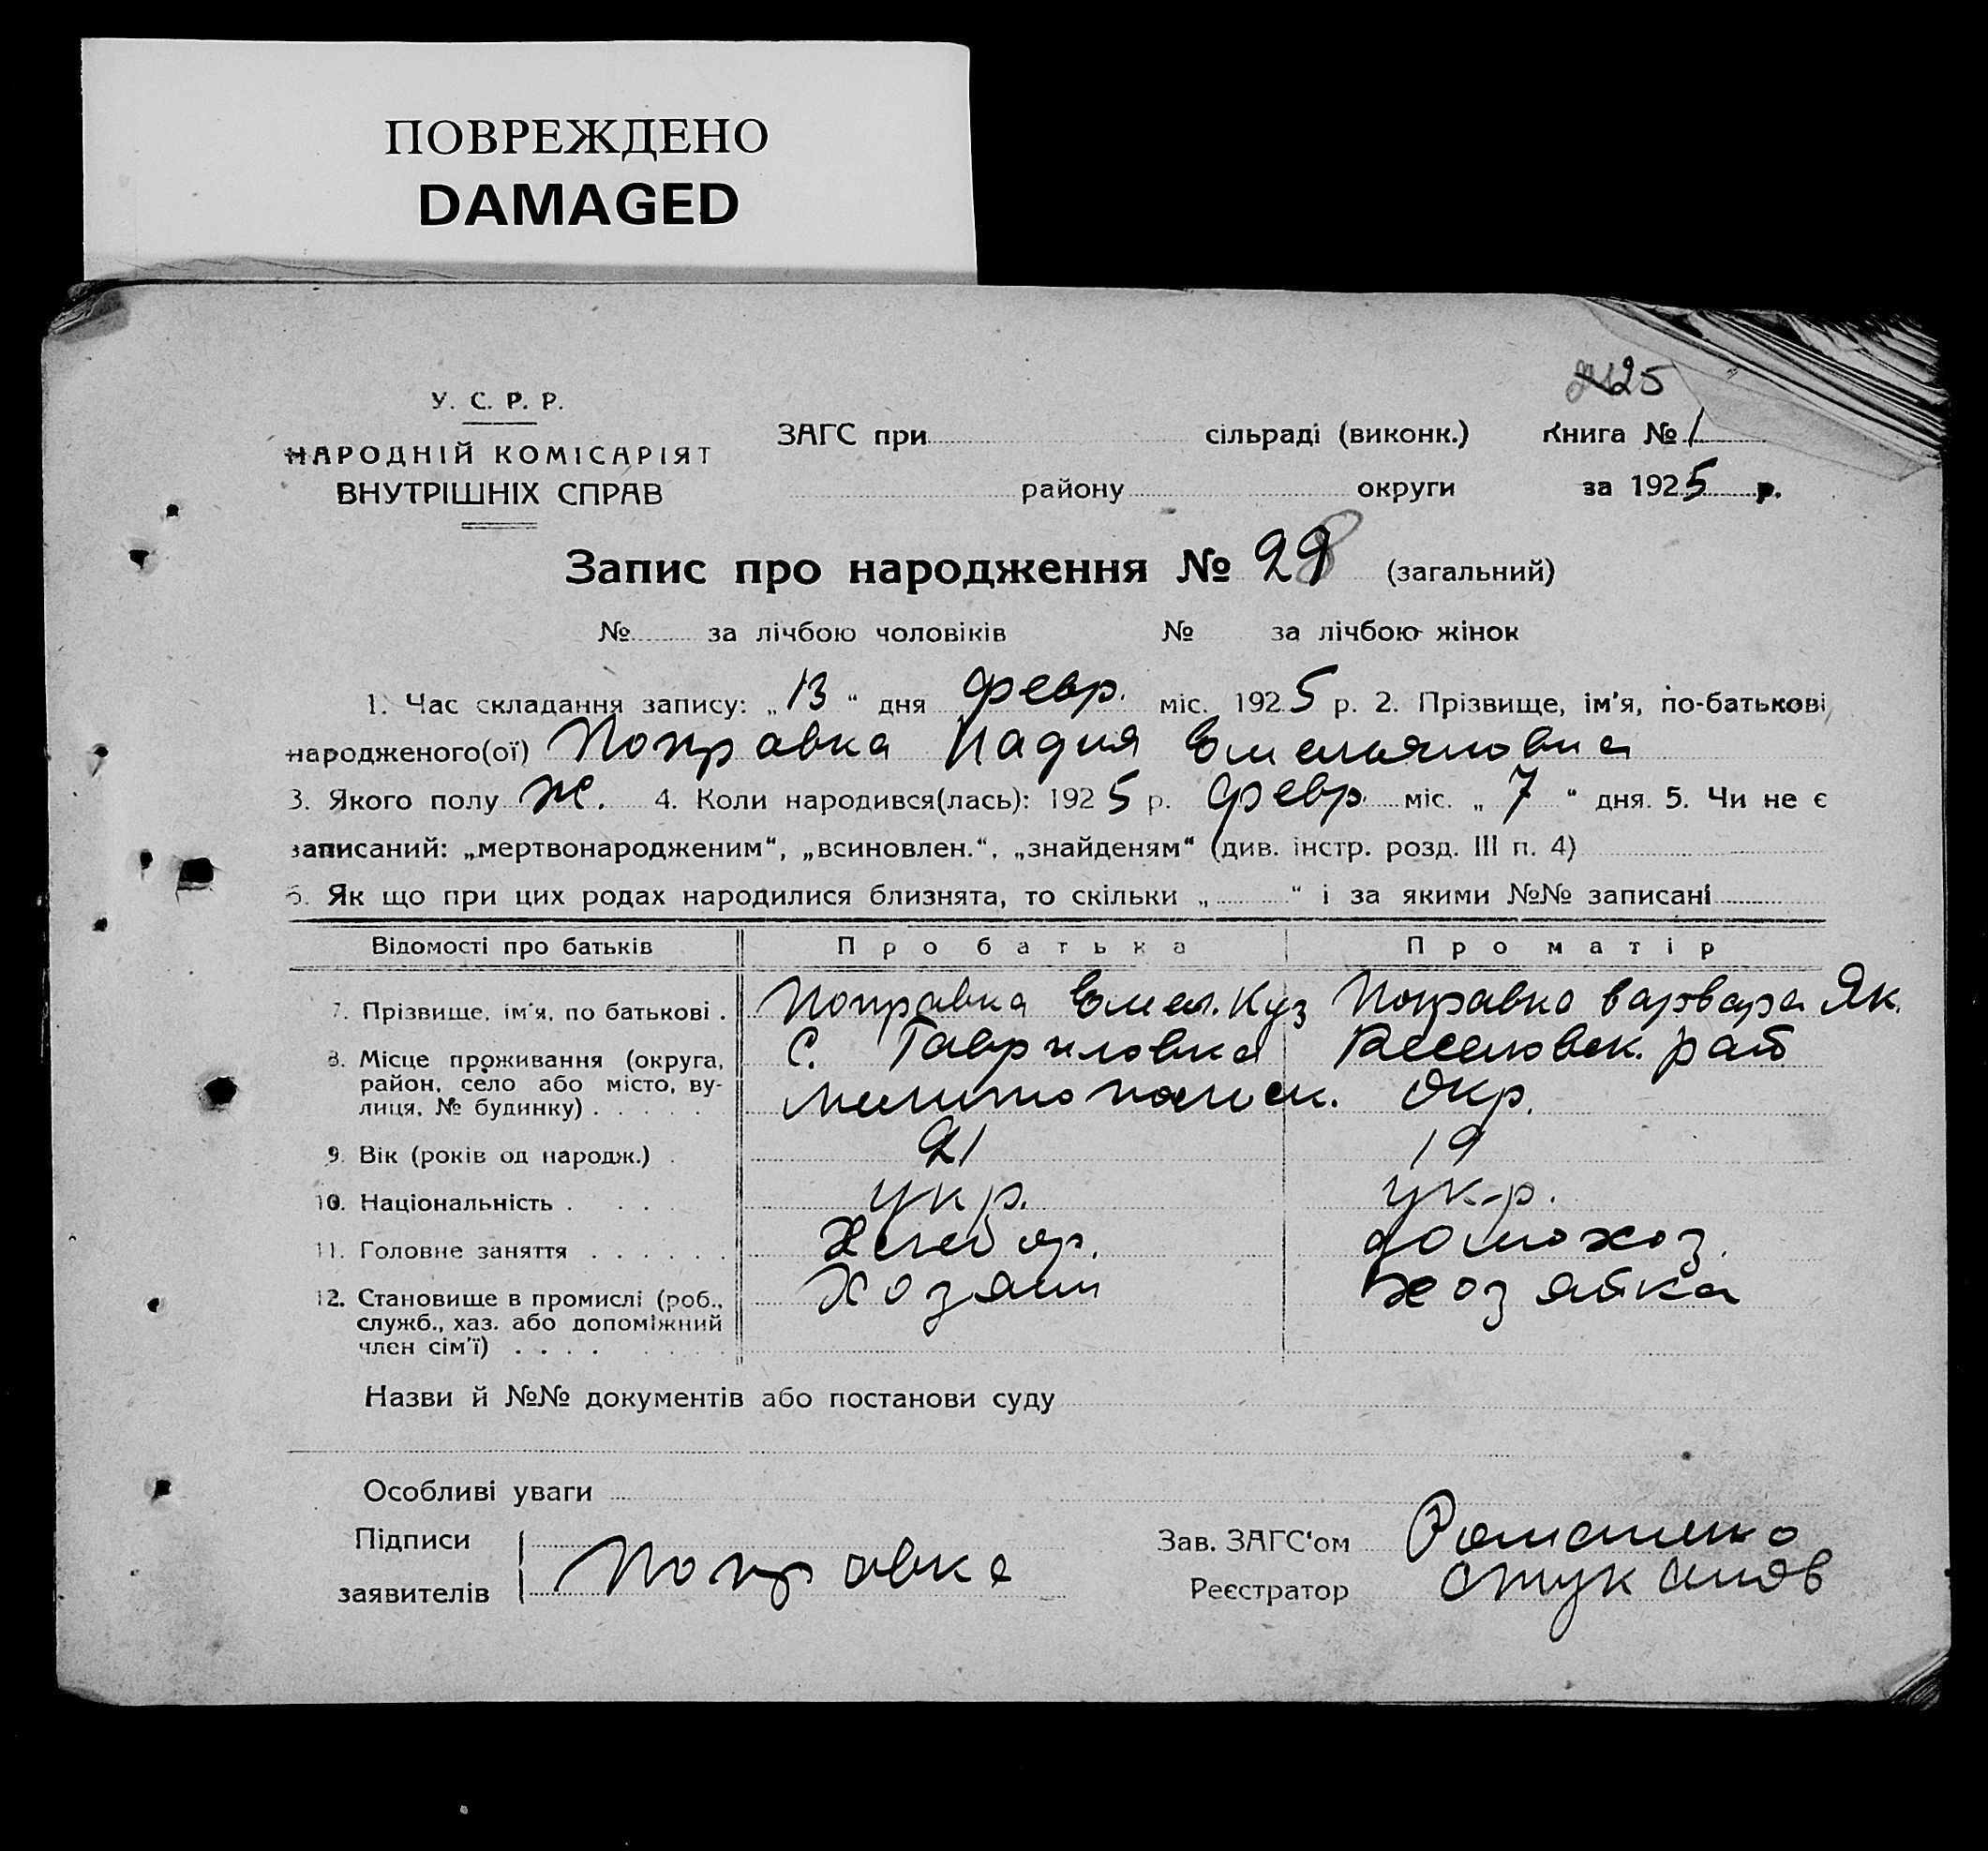 ПОВРЕЖДЕНО
DAMAGED
25
У. С. Р. Р.
НАРОДНІЙ КОМІСАРІЯТ
ВНУТРІШНІХ СПРАВ
ЗАГС при сільраді (виконк.) Книга № 1
району округи за 1925 р.
Запис про народження № 29 (загальний)
№ за лічбою чоловіків № за лічбою жінок
1. Час складання запису: „13“ дня февр. міс. 1925 р. 2. Прізвище, ім'я, по-батькові
народженого(ої) Поправка Надия Емельяновна
3. Якого полу ж. 4. Коли народився(лась): 1925 р. февр. міс. „7“ дня. 5. Чи не є
записаний: „мертвонародженим“, „всиновлен.“, „знайденям“ (див. інстр. розд. III п. 4)
6. Як що при цих родах народилися близнята, то скільки „ “ і за якими №№ записані
Відомості про батьків Про батька Про матір
7. Прізвище, ім'я, по батькові . Поправка Емел. Куз Поправка Варвара Як.
8. Місце проживання (округа, С. Гавриловка Веселовск. рай
район, село або місто, ву- Мелитопольск. Окр.
лиця, № будинку) . . . . .
9. Вік (років од народж.) . 21 19
10. Національність . . . укр. укр.
11. Головне заняття . . . . . . Хлебор. домохоз.
12. Становище в промислі (роб., Хозяин хозяйка
служб., хаз. або допоміжний
член сім'ї) . . . .
Назви й №№ документів або постанови суду
Особливі уваги
Підписи
заявителів Поправка
Зав. ЗАГС'ом Романенко
Реєстратор